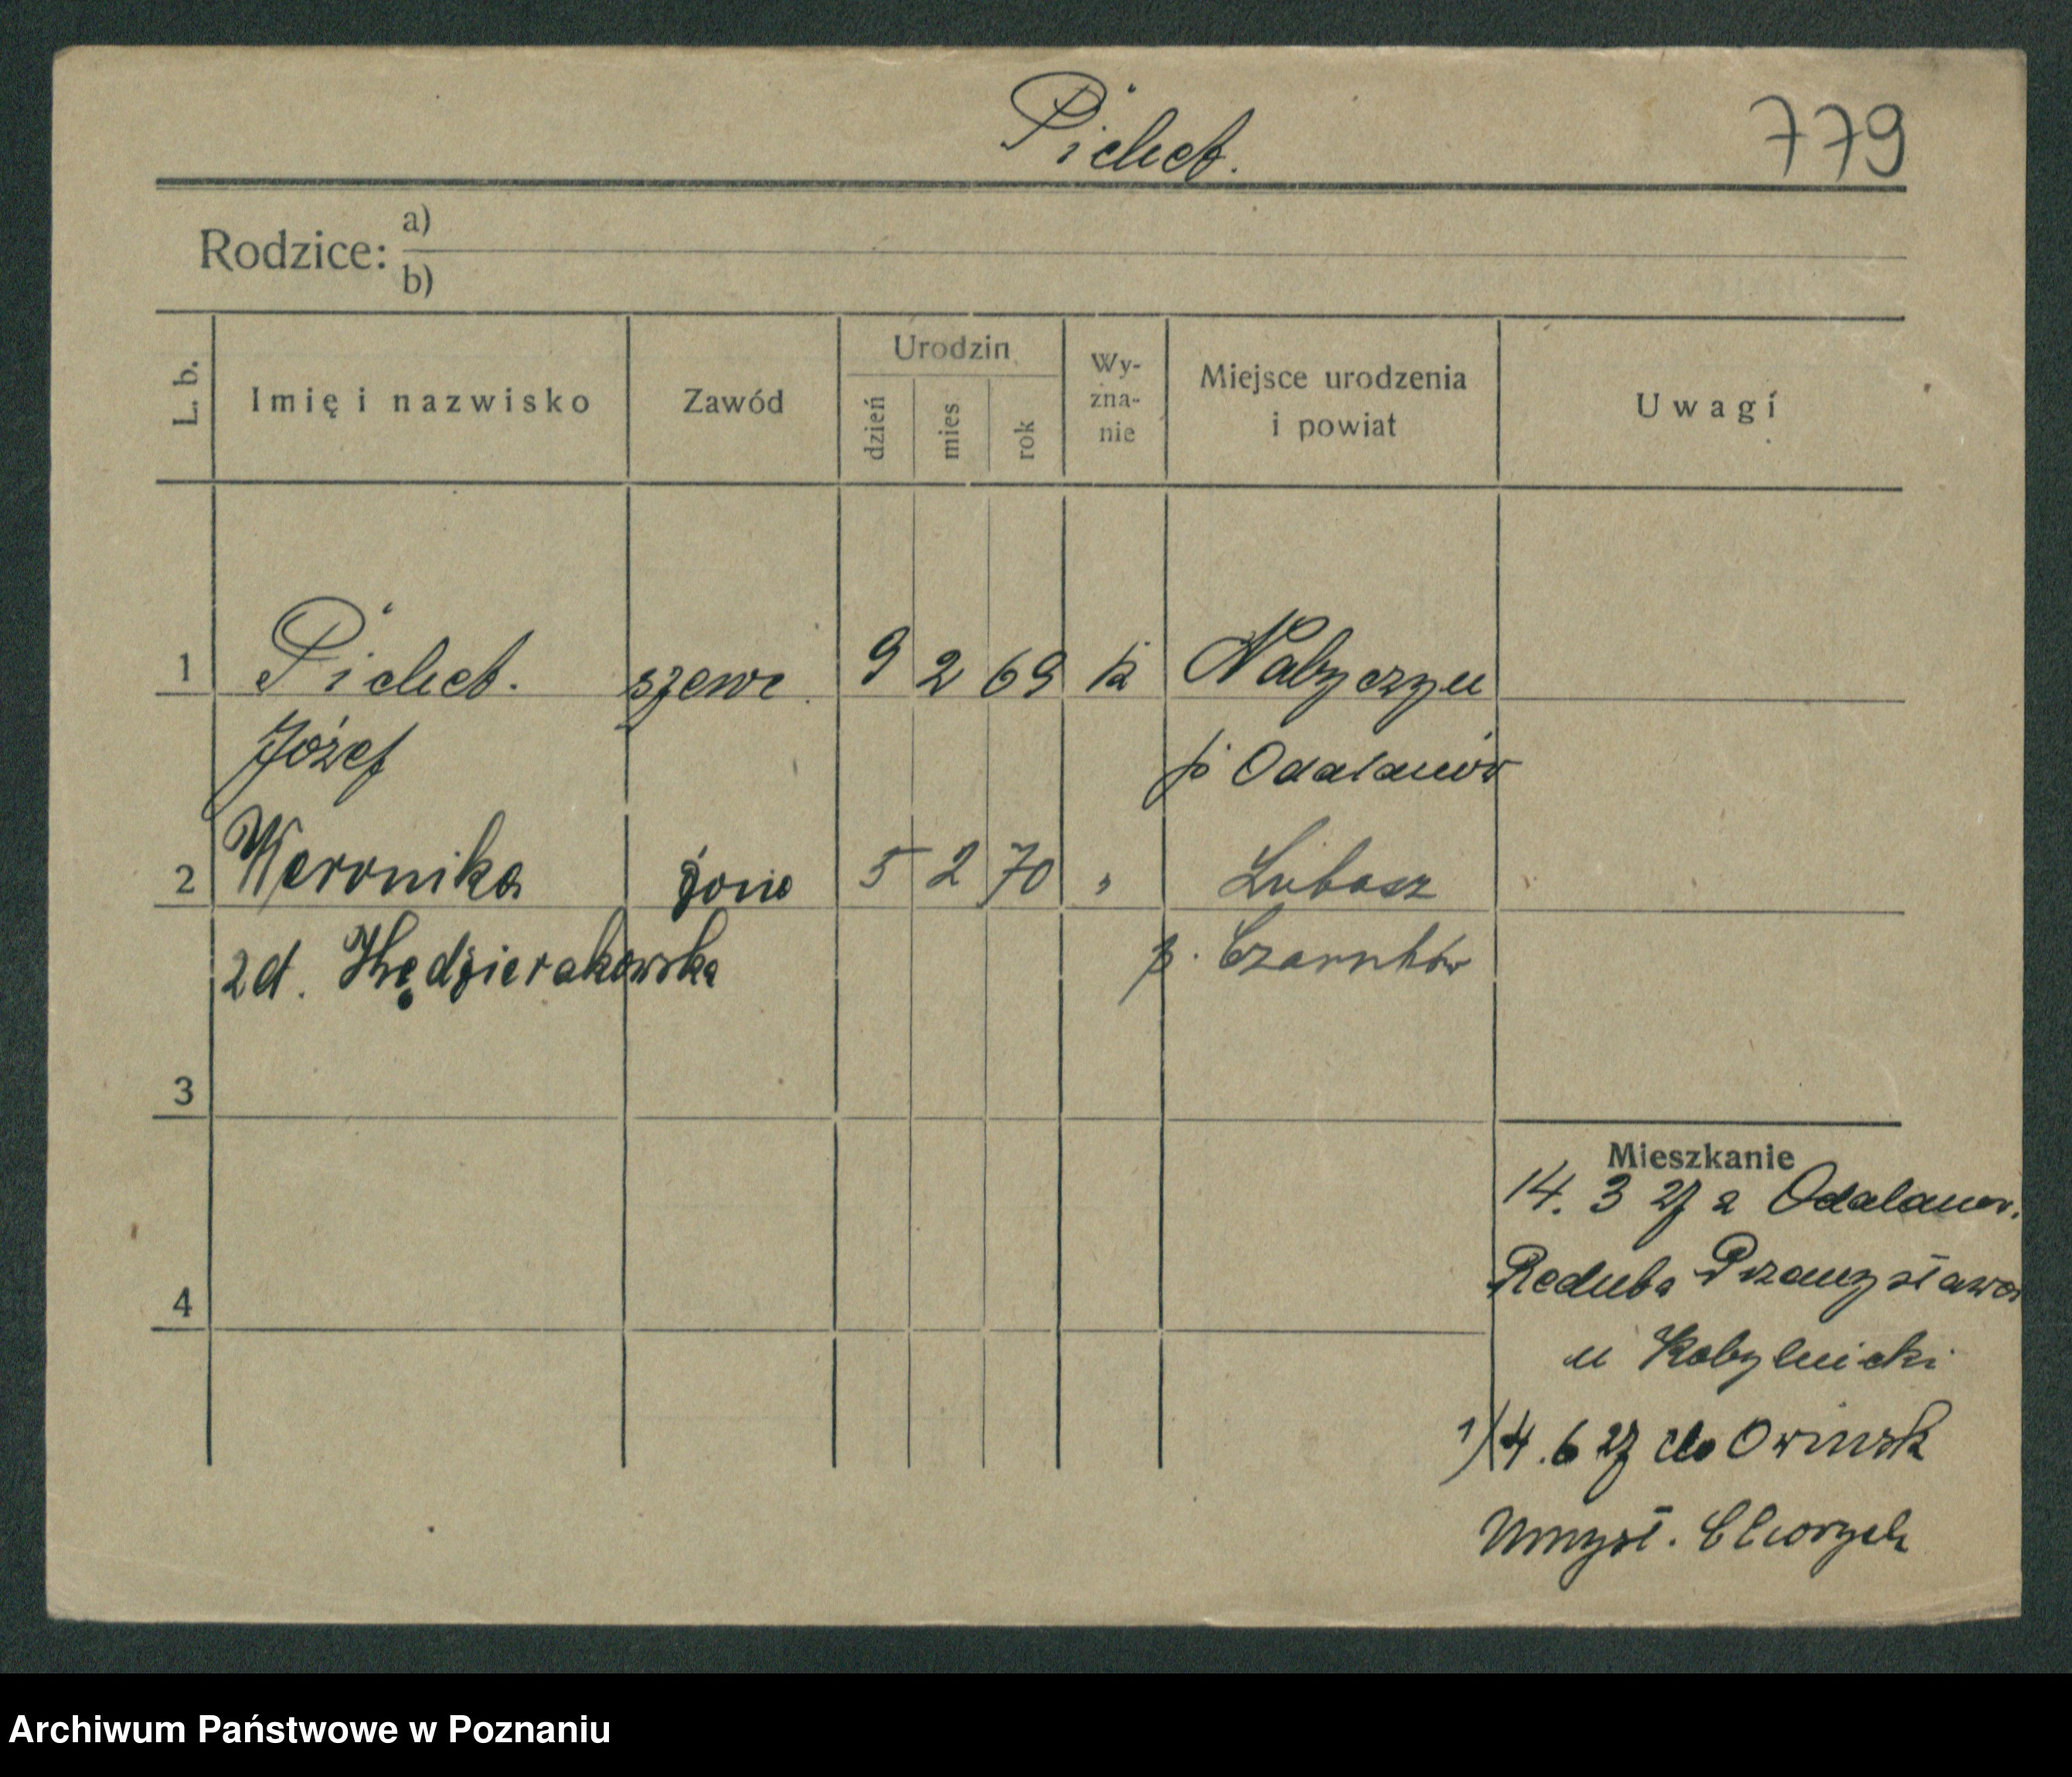 Pichet.
779
Rodzice: a)
b)
L. b.
Imię i nazwisko
Zawód
Urodzin
dzień
mies
rok
Wy-
zna-
nie
Miejsce urodzenia
i powiat
Uwagi
1 Pichet. szewc 9 2 69 k Nabyczyn
Józef p Odalanów
2 Weronika żona 5 2 70 " Lubasz
zd. Kędzierakowska p. Czarnków
3
Mieszkanie
14. 3 27 z Odalanow.
4
Reduta Przemysława
u Kobylnicki
1) 4. 6 27 do Owinsk
Umysł. Chorych
Archiwum Państwowe w Poznaniu